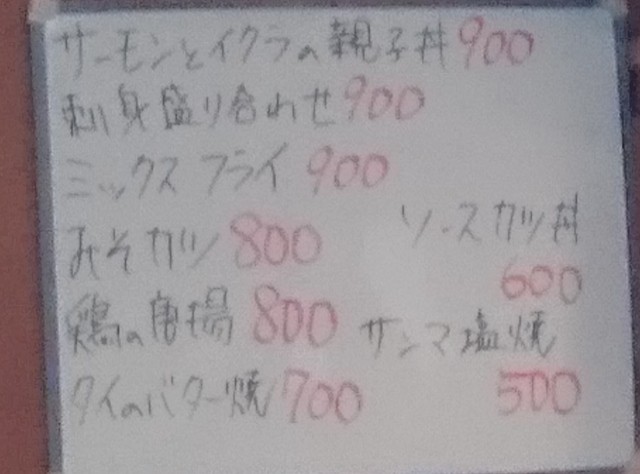 サーモンとイクラの親子丼900
刺身盛り合わせ900
ミックスフライ 900
みそカツ 800
鶏の唐揚 800
タイのバター焼 700
ソースカツ丼
600
サンマ塩焼
500